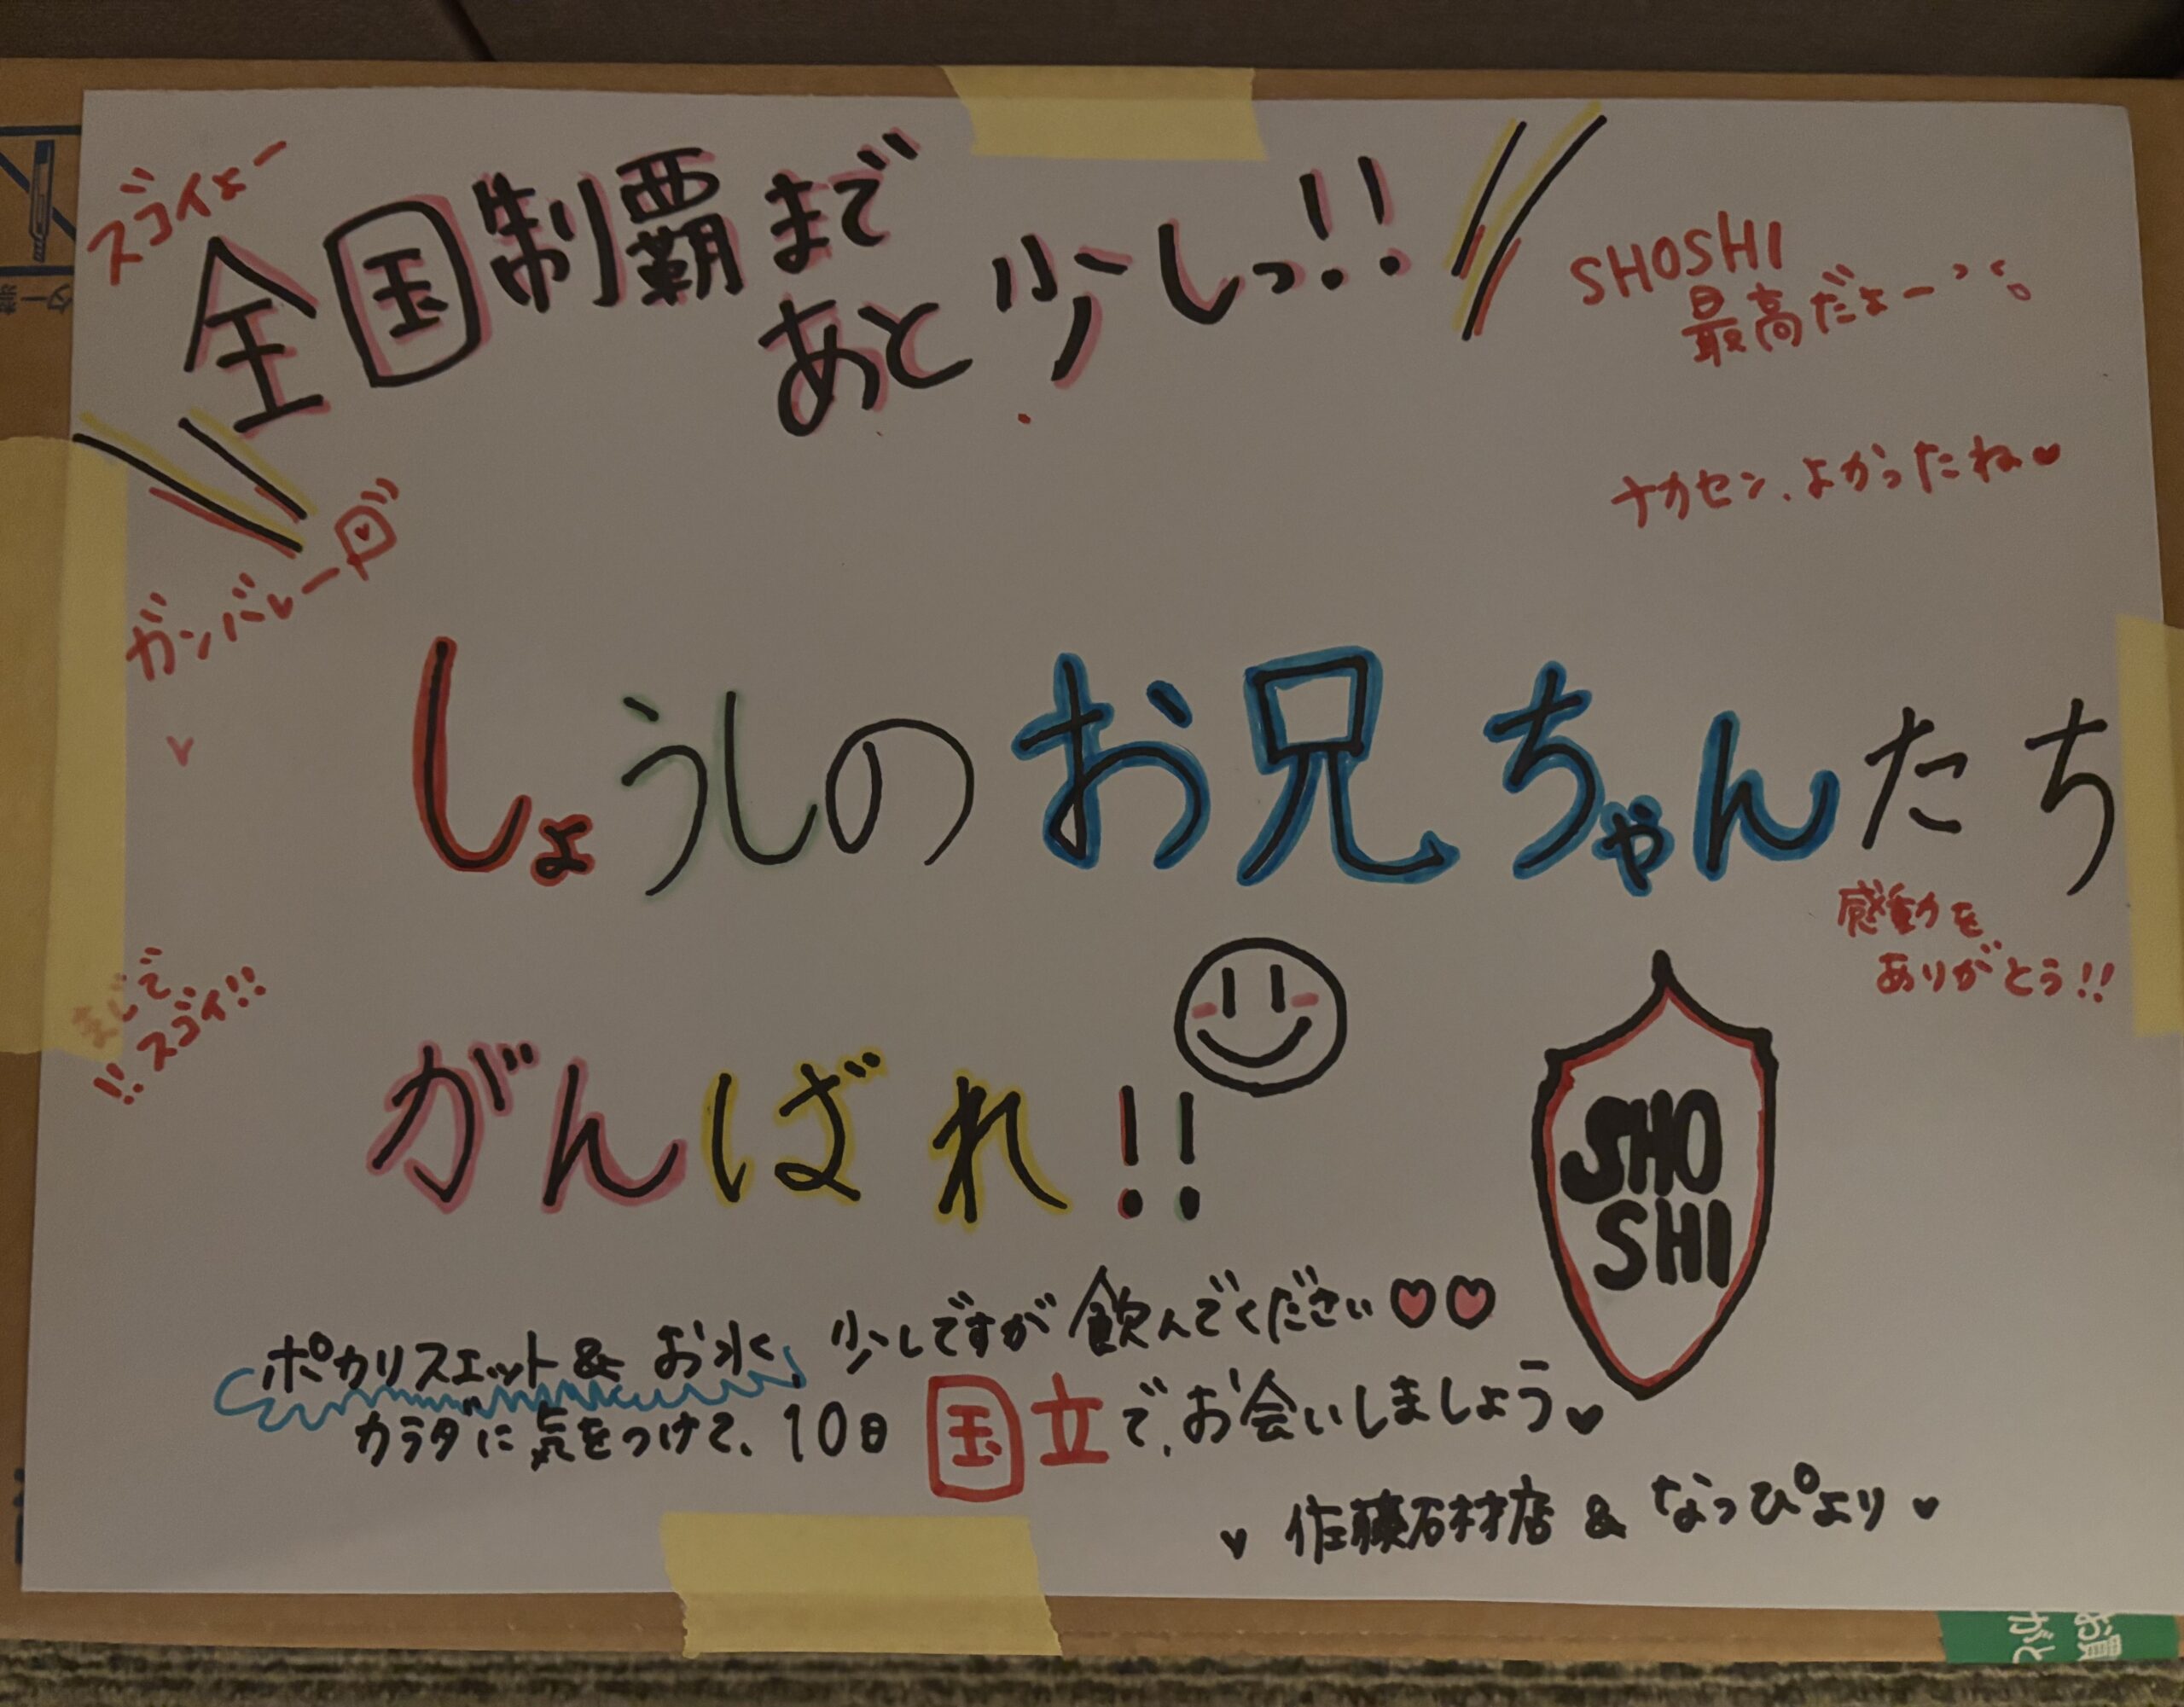 スゴイょー
全国制覇まで
あと少しっ!!
SHOSHI
最高だょー
ナカセン、よかったね♥
ガンバレー
しょうしのお兄ちゃんたち
感動を
ありがとう!!
まじで
!!スゴイ!!
がんばれ!!
SHO
SHI
ポカリスエット&お水、少しですが飲んでください♡♡
カラダに気をつけて、10日国立で、お会いしましょう♥
♥佐藤石材店&なっぴより♥